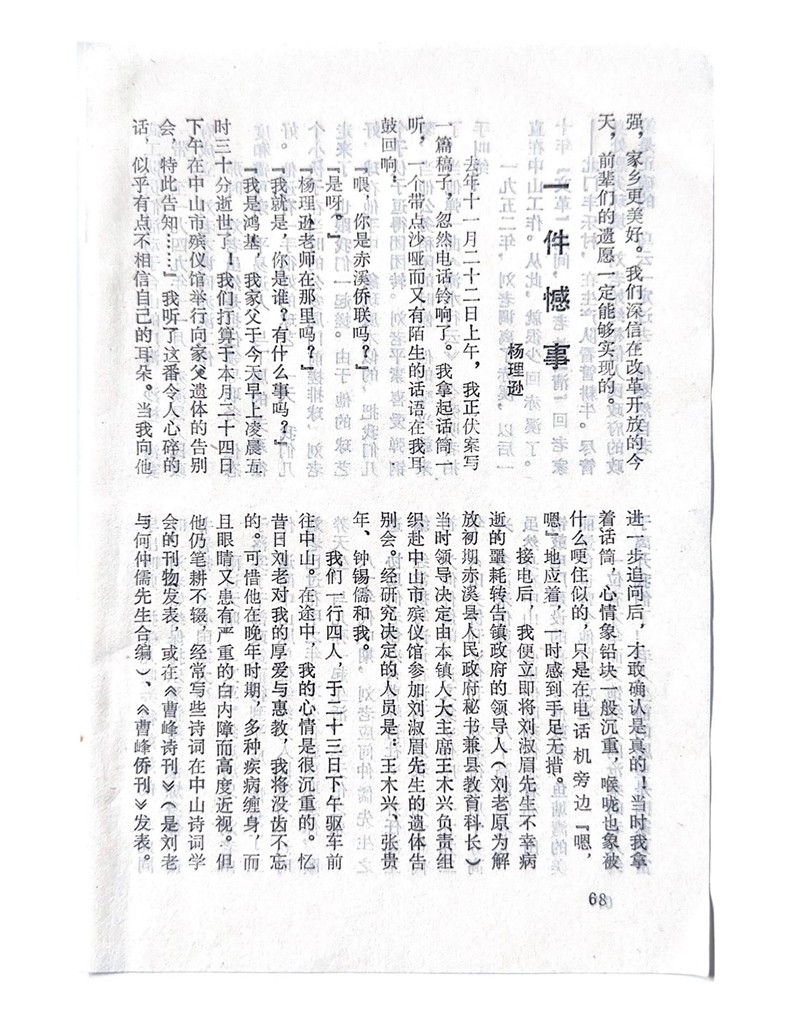 强，家乡更美好。我们深信在改革开放的今
天，前辈们的遗愿一定能够实现的。
一件憾事
杨理逊
去年十一月二十二日上午，我正伏案写
一篇稿子，忽然电话铃响了。我拿起话筒一
听，一个带点沙哑而又有陌生的话语在我耳
鼓回响，
『喂，你是赤溪侨联吗？』
『是呀。』
『杨理逊老师在那里吗？』
『我就是，你是谁？有什么事吗？』
『我是鸿基，我家父于今天早上凌晨五
时三十分逝世了！我们打算于本月二十四日
下午在中山市殡仪馆举行向家父遗体的告别
会，特此告知……』我听了这番令人心碎的
话，似乎有点不相信自己的耳朵。当我向他
进一步追问后，才敢确认是真的！当时我拿
着话筒，心情象铅块一般沉重，喉咙也象被
什么哽住似的，只是在电话机旁边『嗯，
嗯』地应着，一时感到手足无措。
接电后，我便立即将刘淑眉先生不幸病
逝的噩耗转告镇政府的领导人（刘老原为解
放初期赤溪县人民政府秘书兼县教育科长）
当时领导决定由本镇人大主席王木兴负责组
织赴中山市殡仪馆参加刘淑眉先生的遗体告
别会。经研究决定的人员是：王木兴、张贵
年、钟锡儒和我。
我们一行四人，于二十三日下午驱车前
往中山。在途中，我的心情是很沉重的。忆
昔日刘老对我的厚爱与惠教，我将没齿不忘
的。可惜他在晚年时期，多种疾病缠身，而
且眼睛又患有严重的白内障而高度近视。但
他仍笔耕不辍，经常写些诗词在中山诗词学
会的刊物发表，或在《曹峰诗刊》（是刘老
与何仲儒先生合编）、《曹峰侨刊》发表。
68